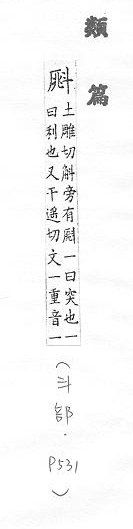 類篇
土雕切斛旁有一曰突也一
曰利也又千遙切文一重音一
（斗部．P531）